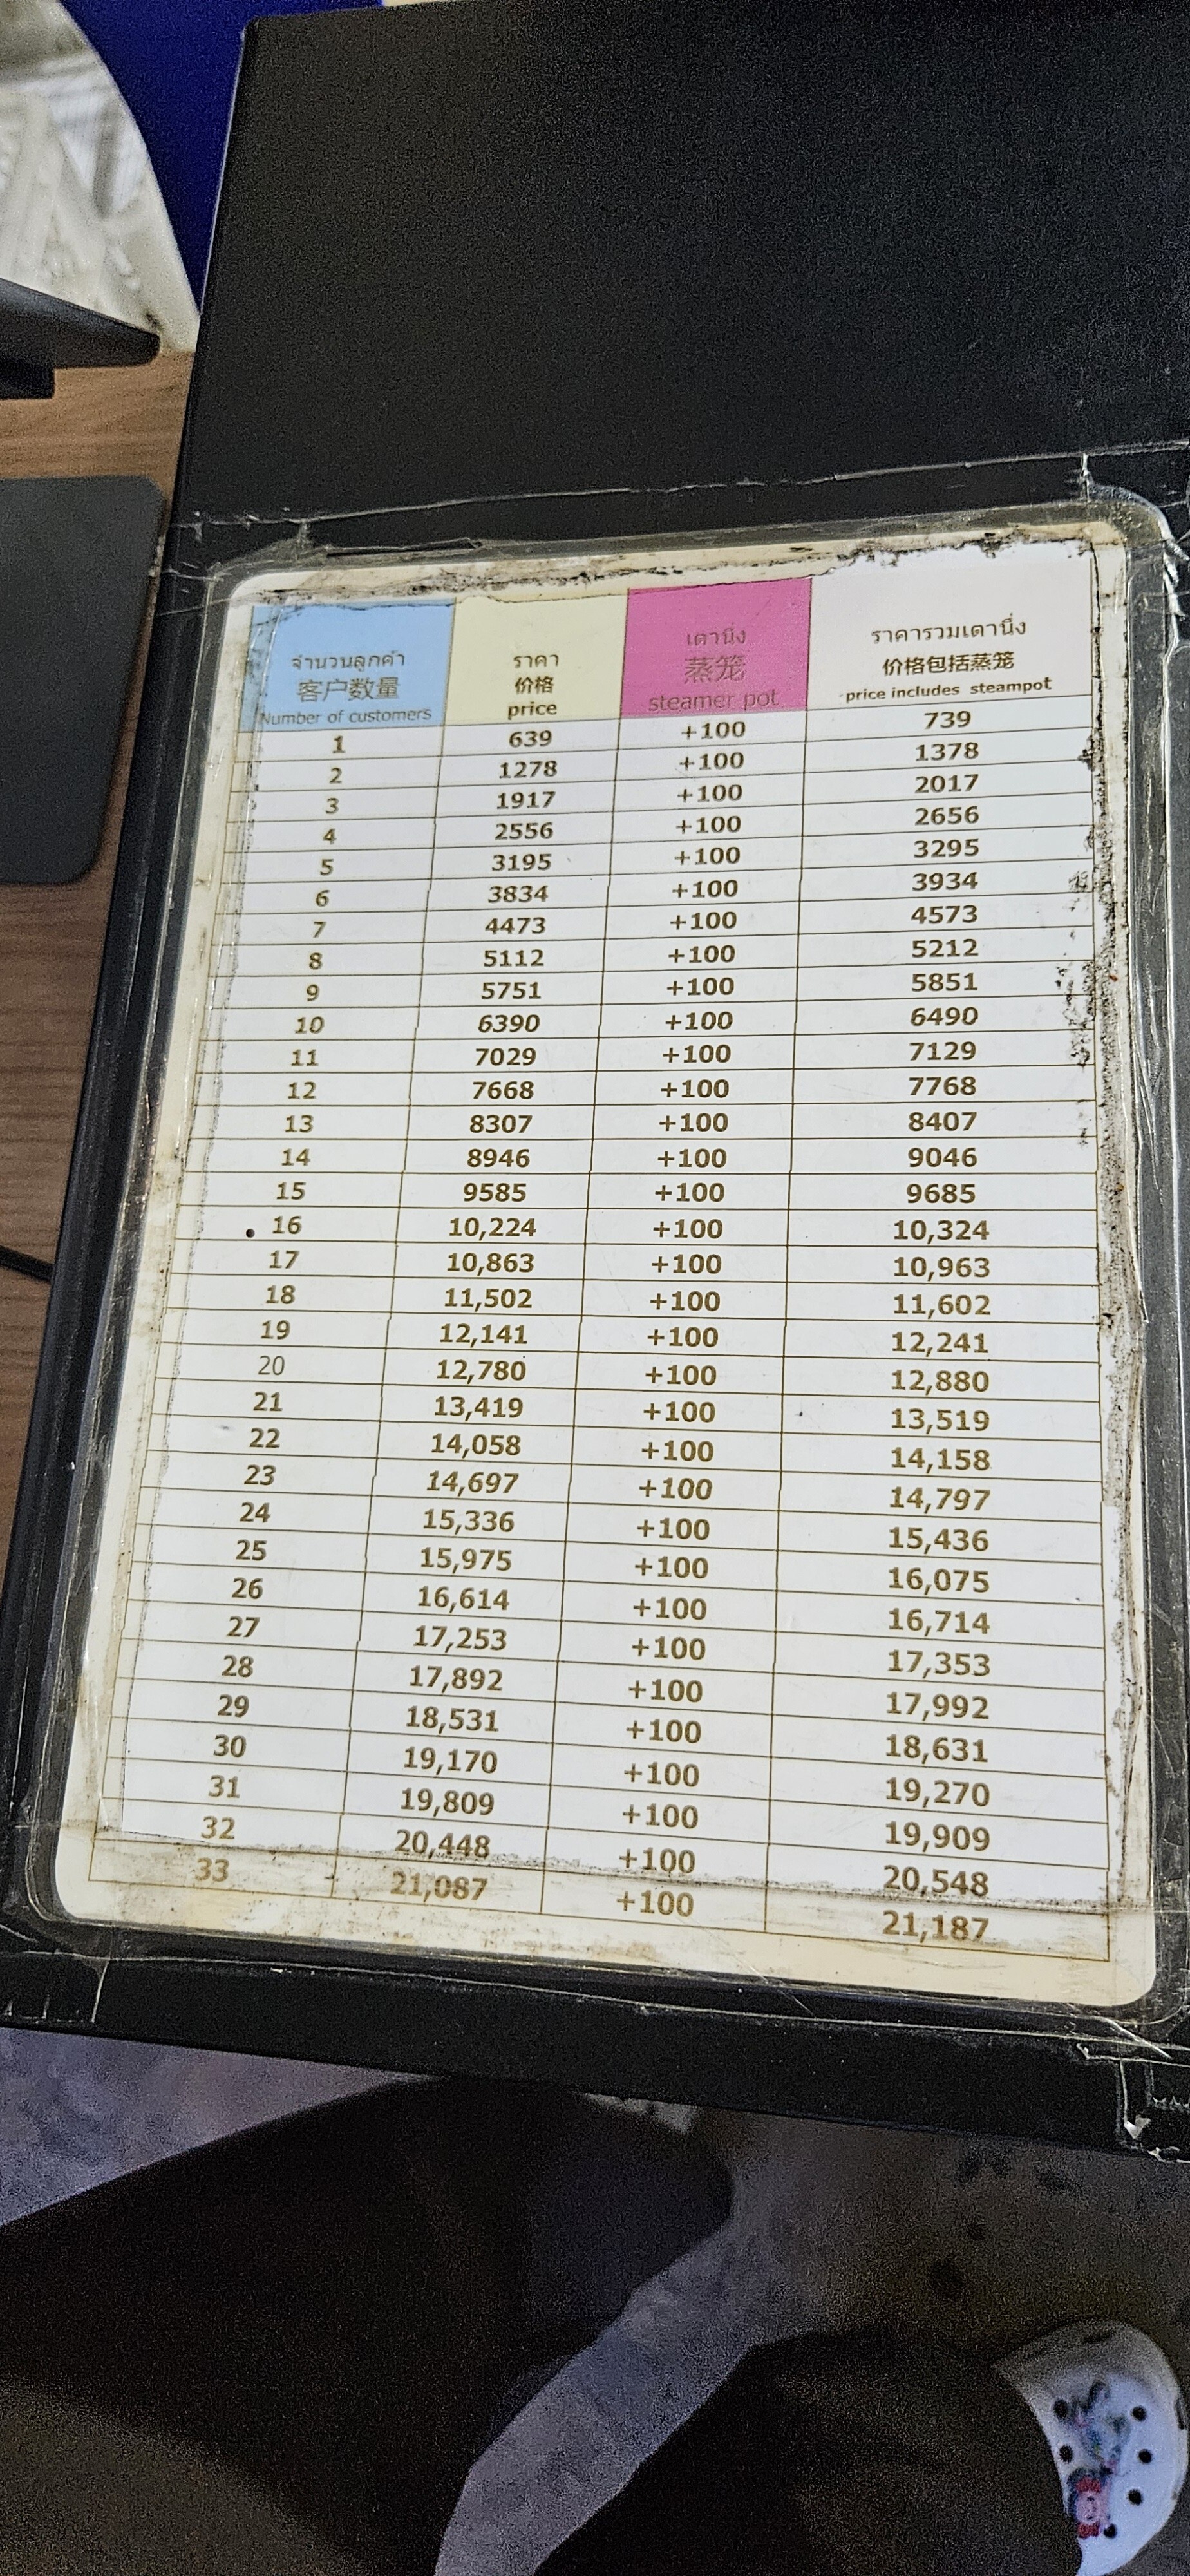 จำนวนลูกค้า
客户数量
Number of customers
ราคา
价格
price
เตานึ่ง
蒸笼
steamer pot
ราคารวมเตานึ่ง
价格包括蒸笼
price includes steampot
1 639 +100 739
2 1278 +100 1378
3 1917 +100 2017
4 2556 +100 2656
5 3195 +100 3295
6 3834 +100 3934
7 4473 +100 4573
8 5112 +100 5212
9 5751 +100 5851
10 6390 +100 6490
11 7029 +100 7129
12 7668 +100 7768
13 8307 +100 8407
14 8946 +100 9046
15 9585 +100 9685
16 10,224 +100 10,324
17 10,863 +100 10,963
18 11,502 +100 11,602
19 12,141 +100 12,241
20 12,780 +100 12,880
21 13,419 +100 13,519
22 14,058 +100 14,158
23 14,697 +100 14,797
24 15,336 +100 15,436
25 15,975 +100 16,075
26 16,614 +100 16,714
27 17,253 +100 17,353
28 17,892 +100 17,992
29 18,531 +100 18,631
30 19,170 +100 19,270
31 19,809 +100 19,909
32 20,448 +100 20,548
33 21,087 +100 21,187